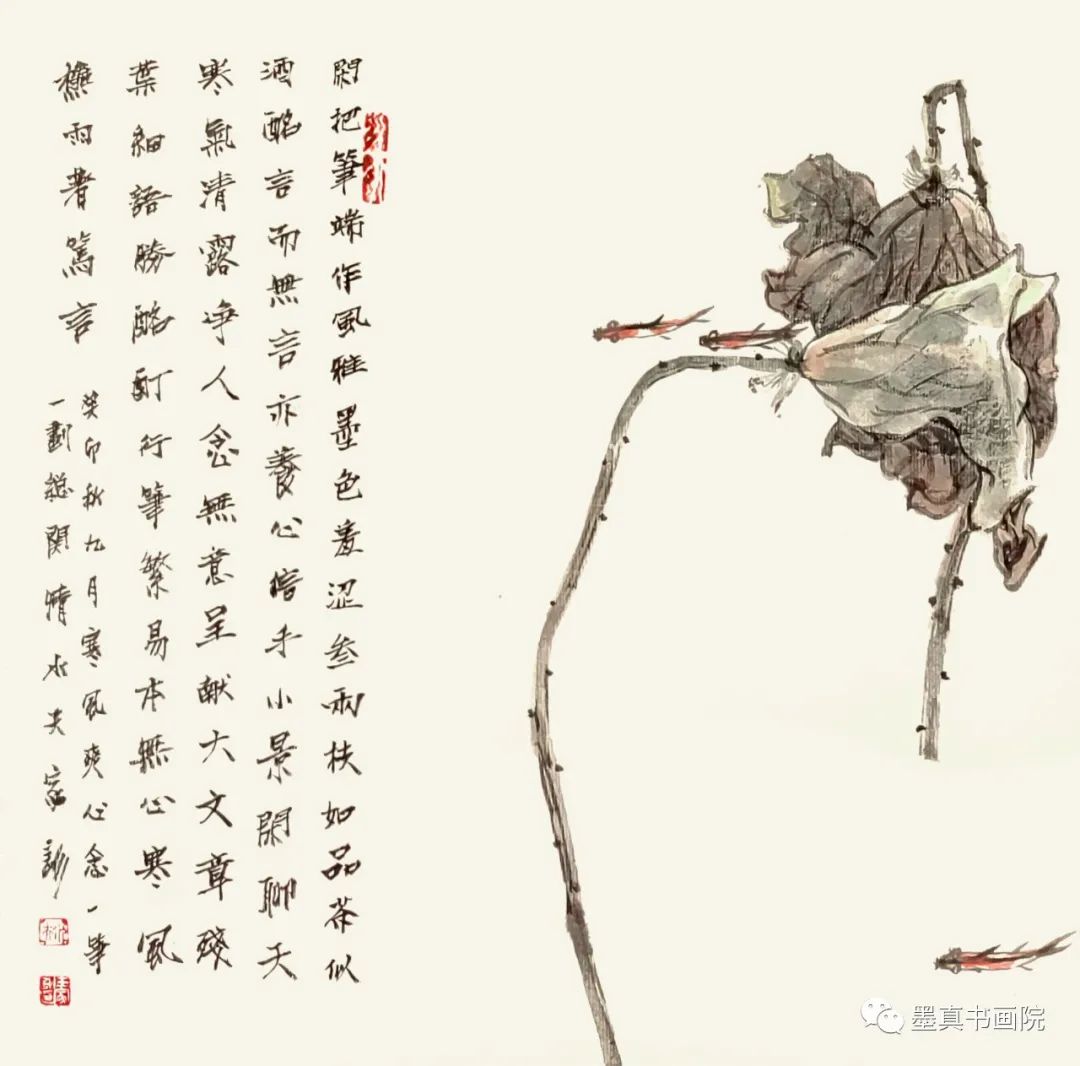 閑把筆端作風雅墨色羞涩叁兩枝如品茶似
酒酩言而無言亦養心信手小景閑聊天
寒氣清露净人念無意呈献大文章殘
葉細語勝酩酊行筆繁易本無心寒風
樵雨著篤言
癸卯秋九月寒風爽心念一筆
一劃總関情水夫寫
墨真书画院